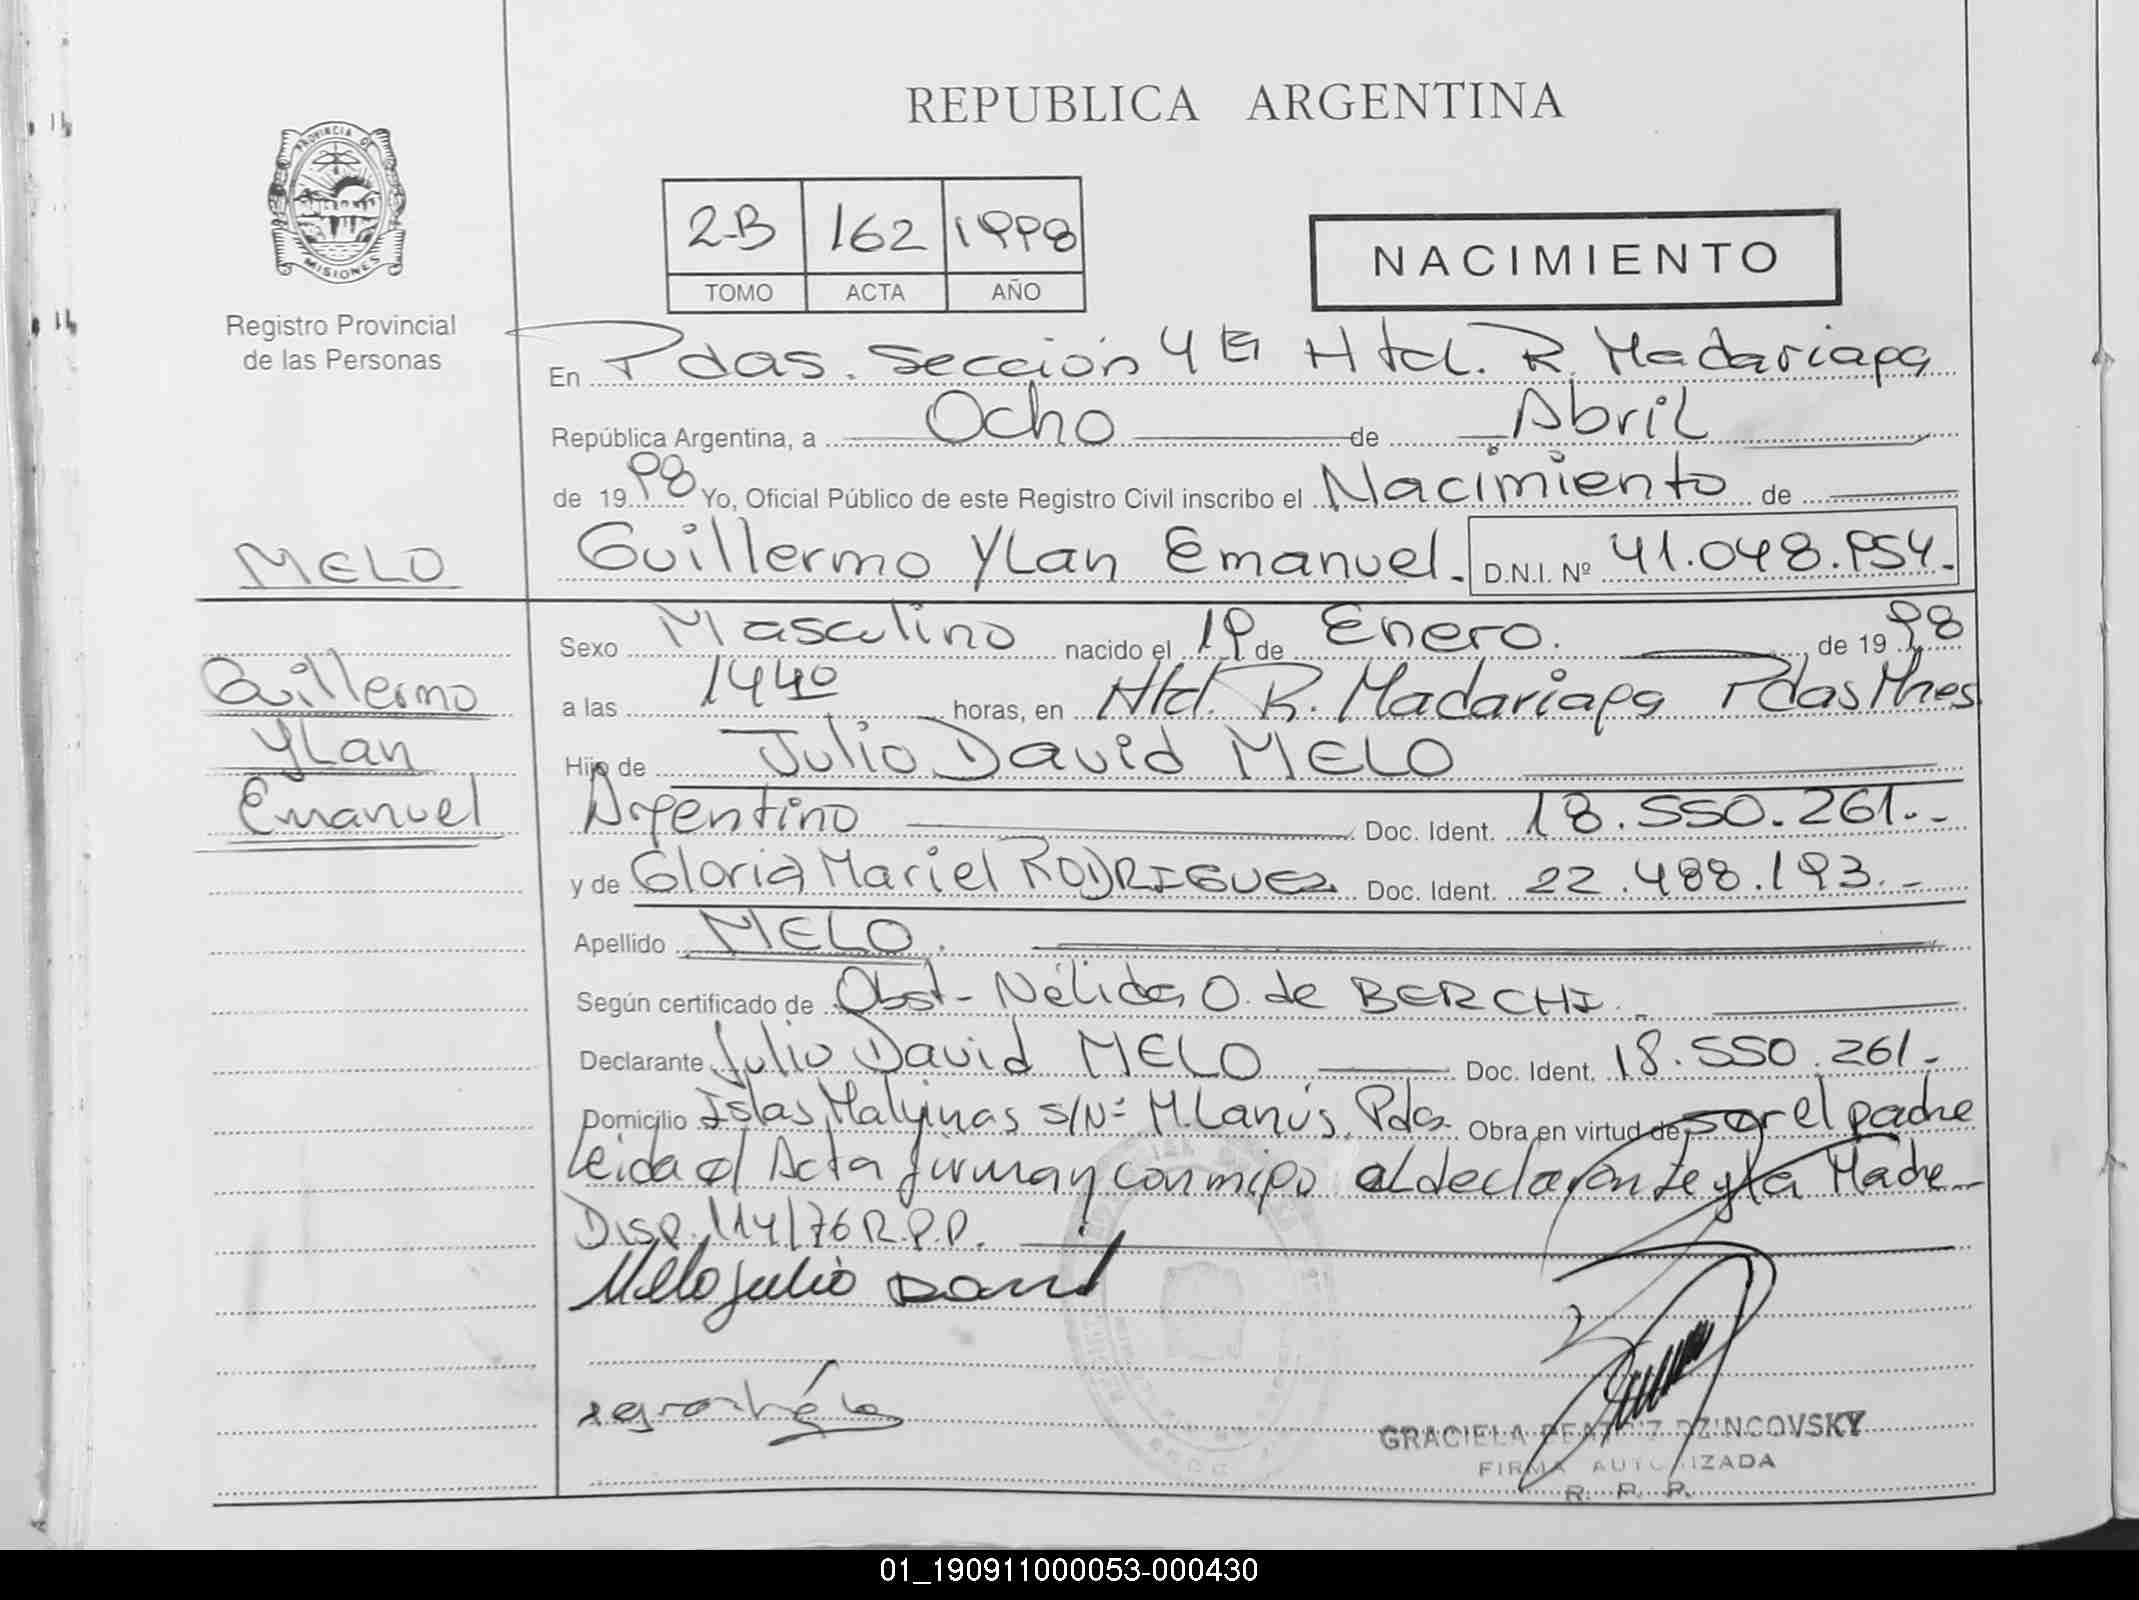 REPUBLICA ARGENTINA
PROVINCIA DE
MISIONES
Registro Provincial
de las Personas
2-B 162 1998
TOMO ACTA AÑO
NACIMIENTO
En Pdas. Sección 4ta Htal. R. Madariaga
República Argentina, a Ocho de Abril
de 1998 Yo, Oficial Público de este Registro Civil inscribo el Nacimiento de
MELO
Guillermo YLan Emanuel. D.N.I. Nº 41.048.954.-
Sexo Masculino nacido el 19 de Enero. de 1998
Guillermo
YLan
Emanuel
a las 1440 horas, en Htal. R. Madariaga Pdas Mnes
Hijo de Julio David MELO
Argentino Doc. Ident. 18.550.261.-
y de Gloria Mariel RODRIGUEZ Doc. Ident. 22.488.193.-
Apellido MELO.
Según certificado de Obst- Nélida O. de BERCHI.
Declarante Julio David MELO Doc. Ident. 18.550.261.-
Domicilio Islas Malvinas s/Nº M. Lanús. Pdas. Obra en virtud de ser el padre
Leida el Acta firman conmigo el declarante y la Madre-
Disp. 114/76 R.P.P.
Melo Julio David
GRACIELA BEATRIZ DZINCOVSKY
FIRMA AUTORIZADA
R. P. P.
01_190911000053-000430